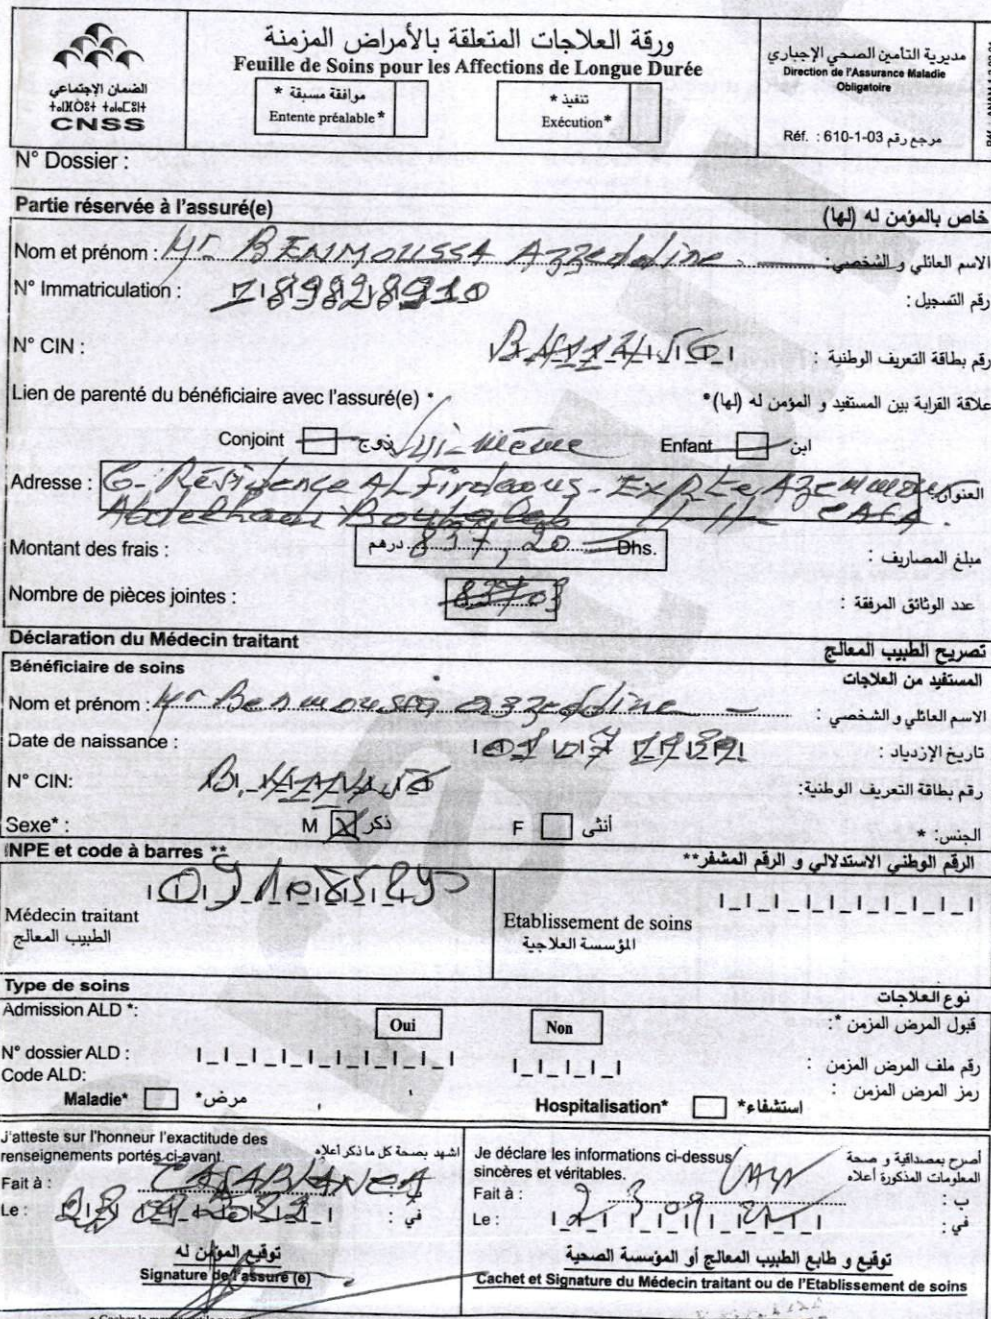 ورقة العلاجات المتعلقة بالأمراض المزمنة
Feuille de Soins pour les Affections de Longue Durée
الضمان الإجتماعي
ⵜⴰⵏⴰⵎⵓⵏⵜ
CNSS
موافقة مسبقة *
Entente préalable *
تنفيذ *
Exécution*
مديرية التامين الصحي الإجباري
Direction de l'Assurance Maladie
Obligatoire
Réf. : 610-1-03 مرجع رقم
N° Dossier :
Partie réservée à l'assuré(e) خاص بالمؤمن له (لها)
Nom et prénom : Mr BENMOUSSA Azzeddine الاسم العائلي و الشخصي :
N° Immatriculation : 189828910 رقم التسجيل :
N° CIN : رقم بطاقة التعريف الوطنية :
Lien de parenté du bénéficiaire avec l'assuré(e) * علاقة القرابة بين المستفيد و المؤمن له (لها)*
Conjoint زوج Lui-même Enfant ابن
Adresse : 6- Résidence AL Firdaous - Ex Rte Azemmour العنوان:
Abdelhadi Boutaleb CASA.
Montant des frais : درهم 837,20 Dhs. مبلغ المصاريف :
Nombre de pièces jointes : عدد الوثائق المرفقة :
Déclaration du Médecin traitant تصريح الطبيب المعالج
Bénéficiaire de soins المستفيد من العلاجات
Nom et prénom : Mr Benmoussa azzeddine الاسم العائلي و الشخصي :
Date de naissance : تاريخ الإزدياد :
N° CIN: رقم بطاقة التعريف الوطنية:
Sexe* : M X ذكر F أنثى الجنس: *
INPE et code à barres ** الرقم الوطني الاستدلالي و الرقم المشفر**
Médecin traitant
الطبيب المعالج
Etablissement de soins
المؤسسة العلاجية
Type de soins نوع العلاجات
Admission ALD *: Oui Non قبول المرض المزمن *:
N° dossier ALD : رقم ملف المرض المزمن
Code ALD: رمز المرض المزمن :
Maladie* مرض* Hospitalisation* استشفاء*
J'atteste sur l'honneur l'exactitude des
renseignements portés ci-avant اشهد بصحة كل ما ذكر أعلاه
Fait à : CASABLANCA
Le : في :
توقيع المؤمن له
Signature de l'assuré (e)
Je déclare les informations ci-dessus
sincères et véritables.
أصرح بمصداقية و صحة
المعلومات المذكورة أعلاه
Fait à : ب :
Le : في :
توقيع و طابع الطبيب المعالج أو المؤسسة الصحية
Cachet et Signature du Médecin traitant ou de l'Etablissement de soins